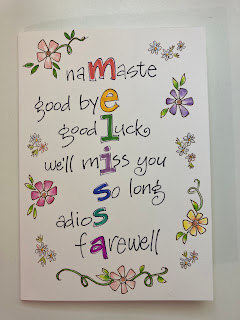 namaste
good bye
good luck
we'll miss you
so long
adios
farewell